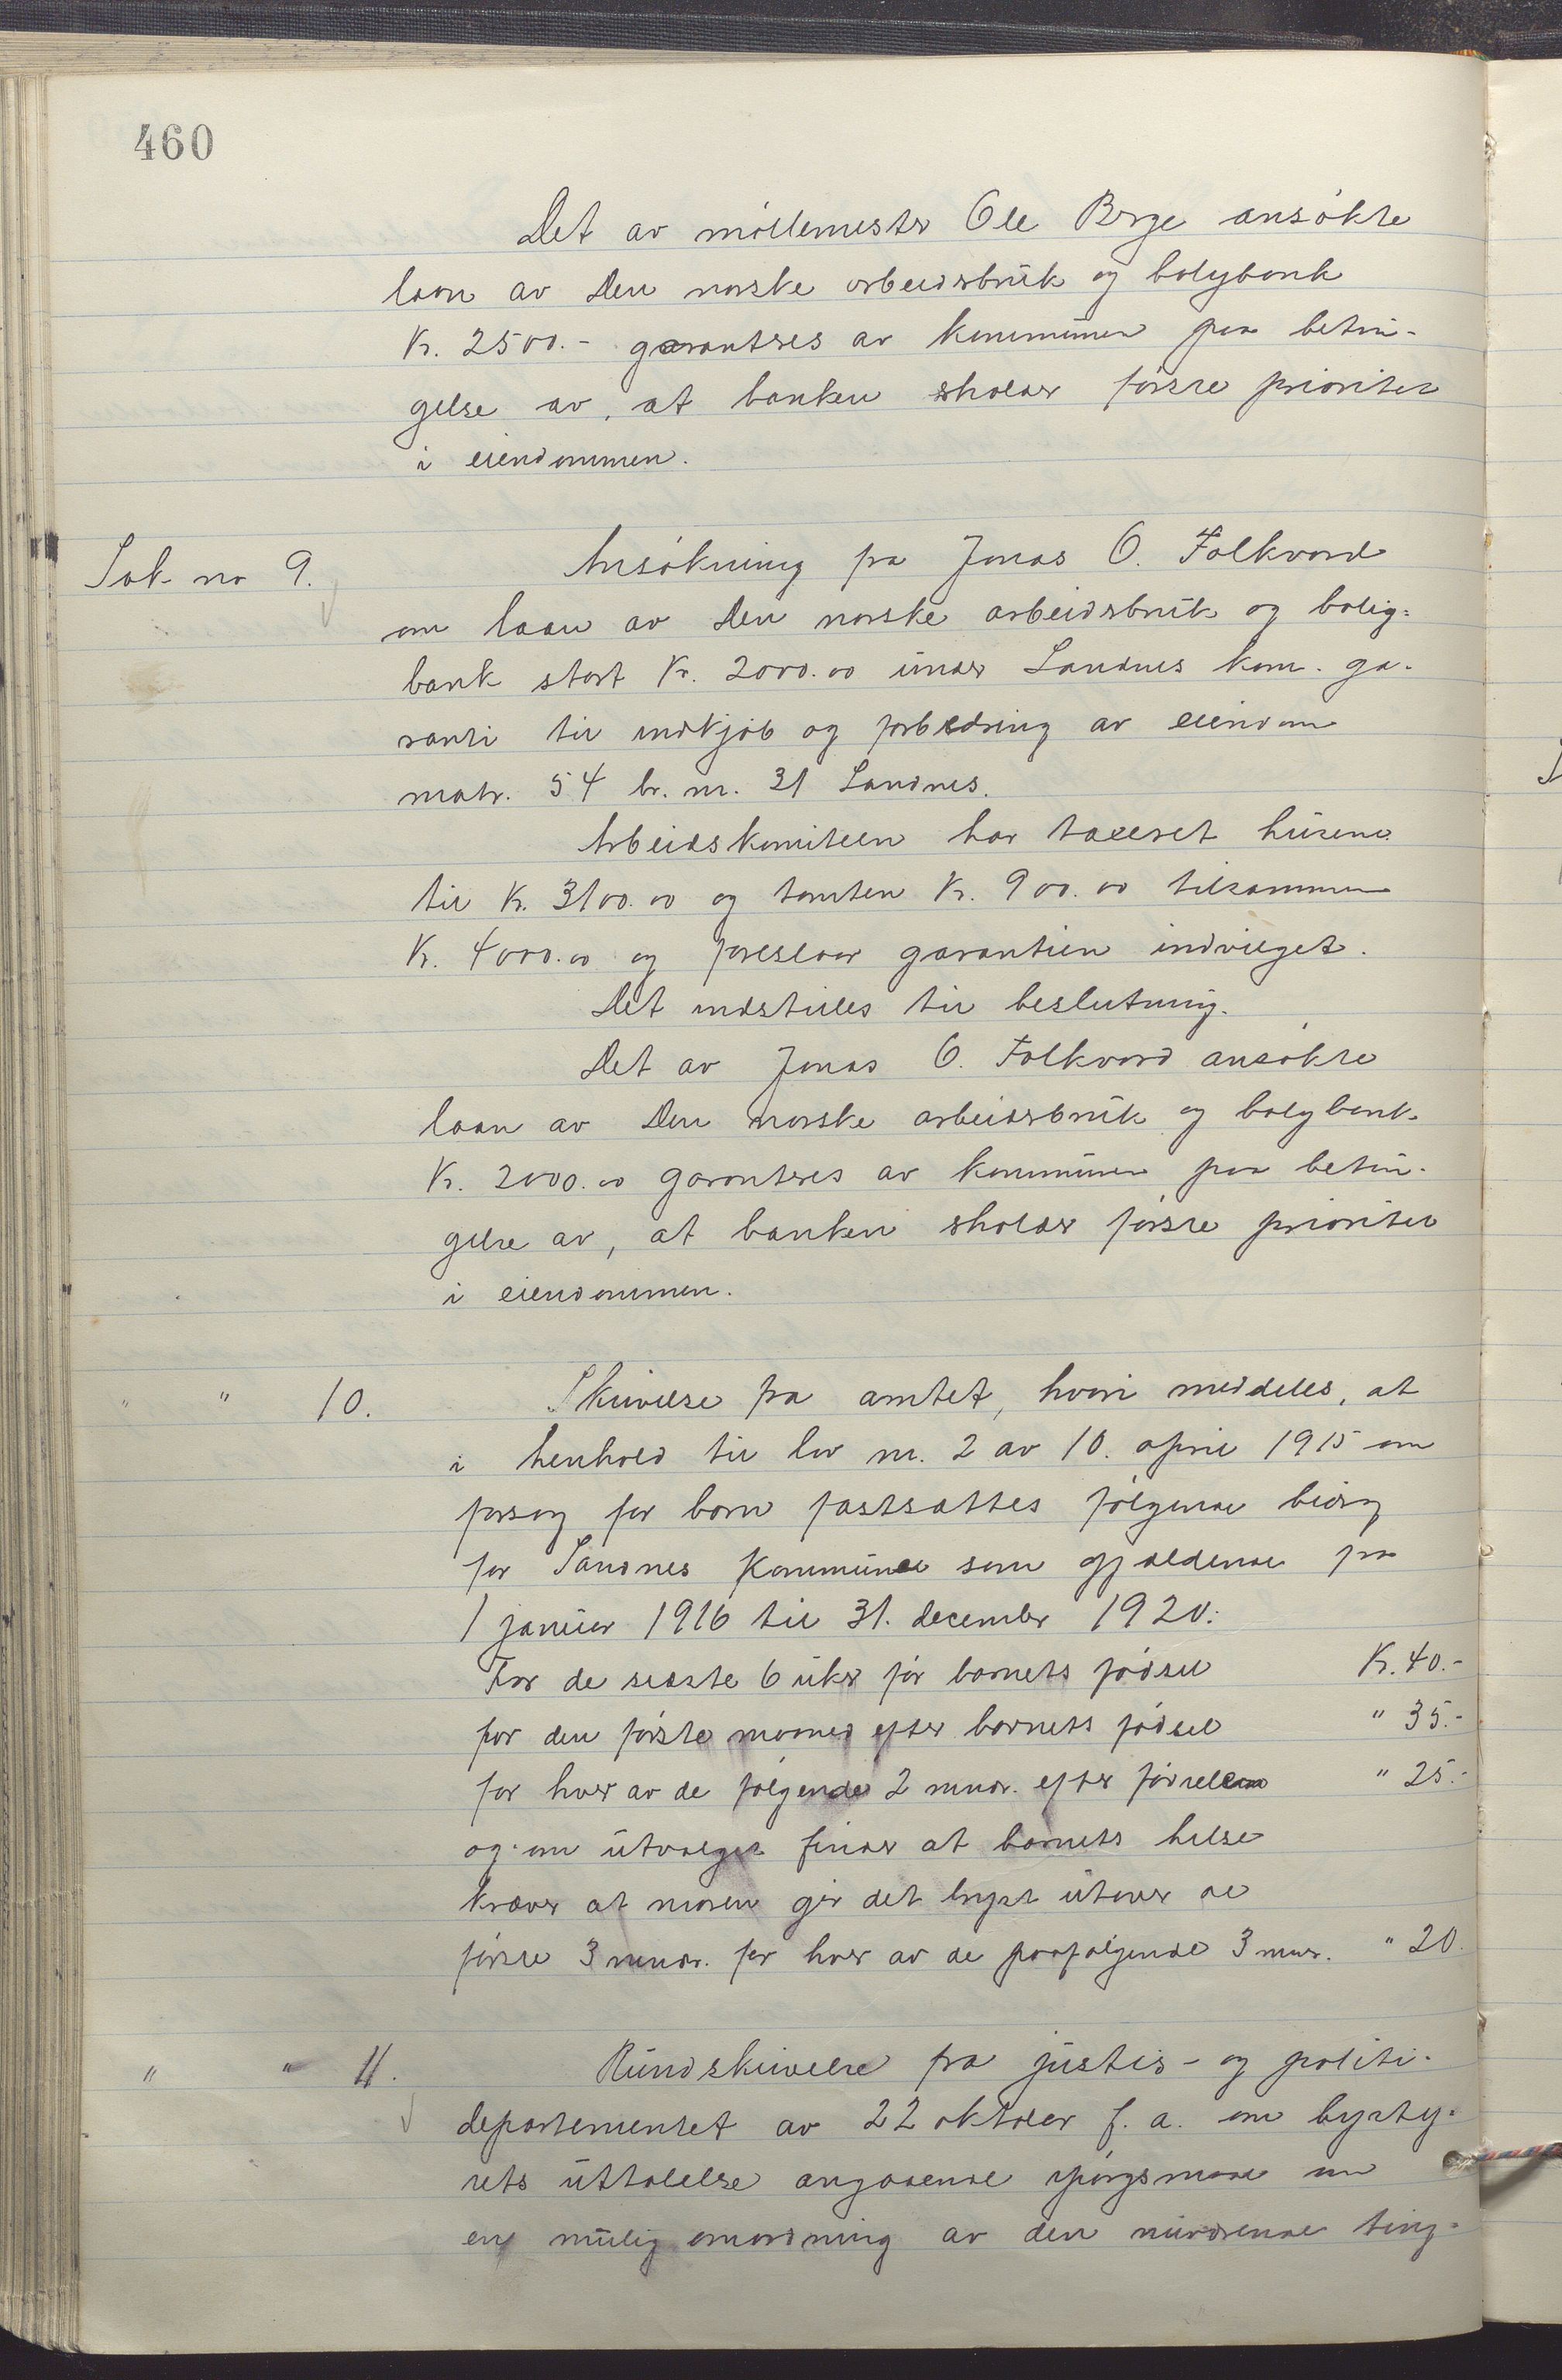 460
Det av møllemester Ole Berge ansøkte
laan av Den norske arbeidsbruk og boligbank
Kr. 2500.- garanteres av kommunen paa betin-
gelse av, at banken erholder første prioritet
i eiendommen.
Sak no 9. Ansøkning fra Jonas O. Folkvord
om laan av Den norske arbeidsbruk og bolig-
bank stort Kr. 2000.00 under Sandnes kom. ga-
ranti til indkjøb og forbedring av eiendom
matr. 54 br. nr. 31 Sandnes.
Arbeidskomiteen har taxeret husene
til Kr. 3100.00 og tomten Kr. 900.00 tilsammen
Kr. 4000.00 og foreslaar garantien indvilget.
Det indstilles til beslutning.
Det av Jonas O. Folkvord ansøkte
laan av Den norske arbeidsbruk og boligbank
Kr. 2000.00 garanteres av kommunen paa betin-
gelse av, at banken erholder første prioritet
i eiendommen.
" " 10. Skrivelse fra amtet, hvori meddeles, at
i henhold til lov nr. 2 av 10. april 1915 om
forsorg for barn fastsættes følgende bidrag
for Sandnes kommune som gjældende fra
1 januar 1916 til 31. december 1920:
For de sidste 6 uker før barnets fødsel Kr. 40.-
for den første maaned efter barnets fødsel " 35.-
for hver av de følgende 2 mndr. efter fødselen " 25.-
og om utvalget finder at barnets helse
kræver at moren gir det bryst utover de
første 3 mndr. for hver av de paafølgende 3 mndr. " 20.
" " 11. Rundskrivelse fra justis- og politi-
departementet av 22 oktober f. a. om bysty-
rets uttalelse angaaende spørgsmaal om
en mulig omordning av den nuværende ting-